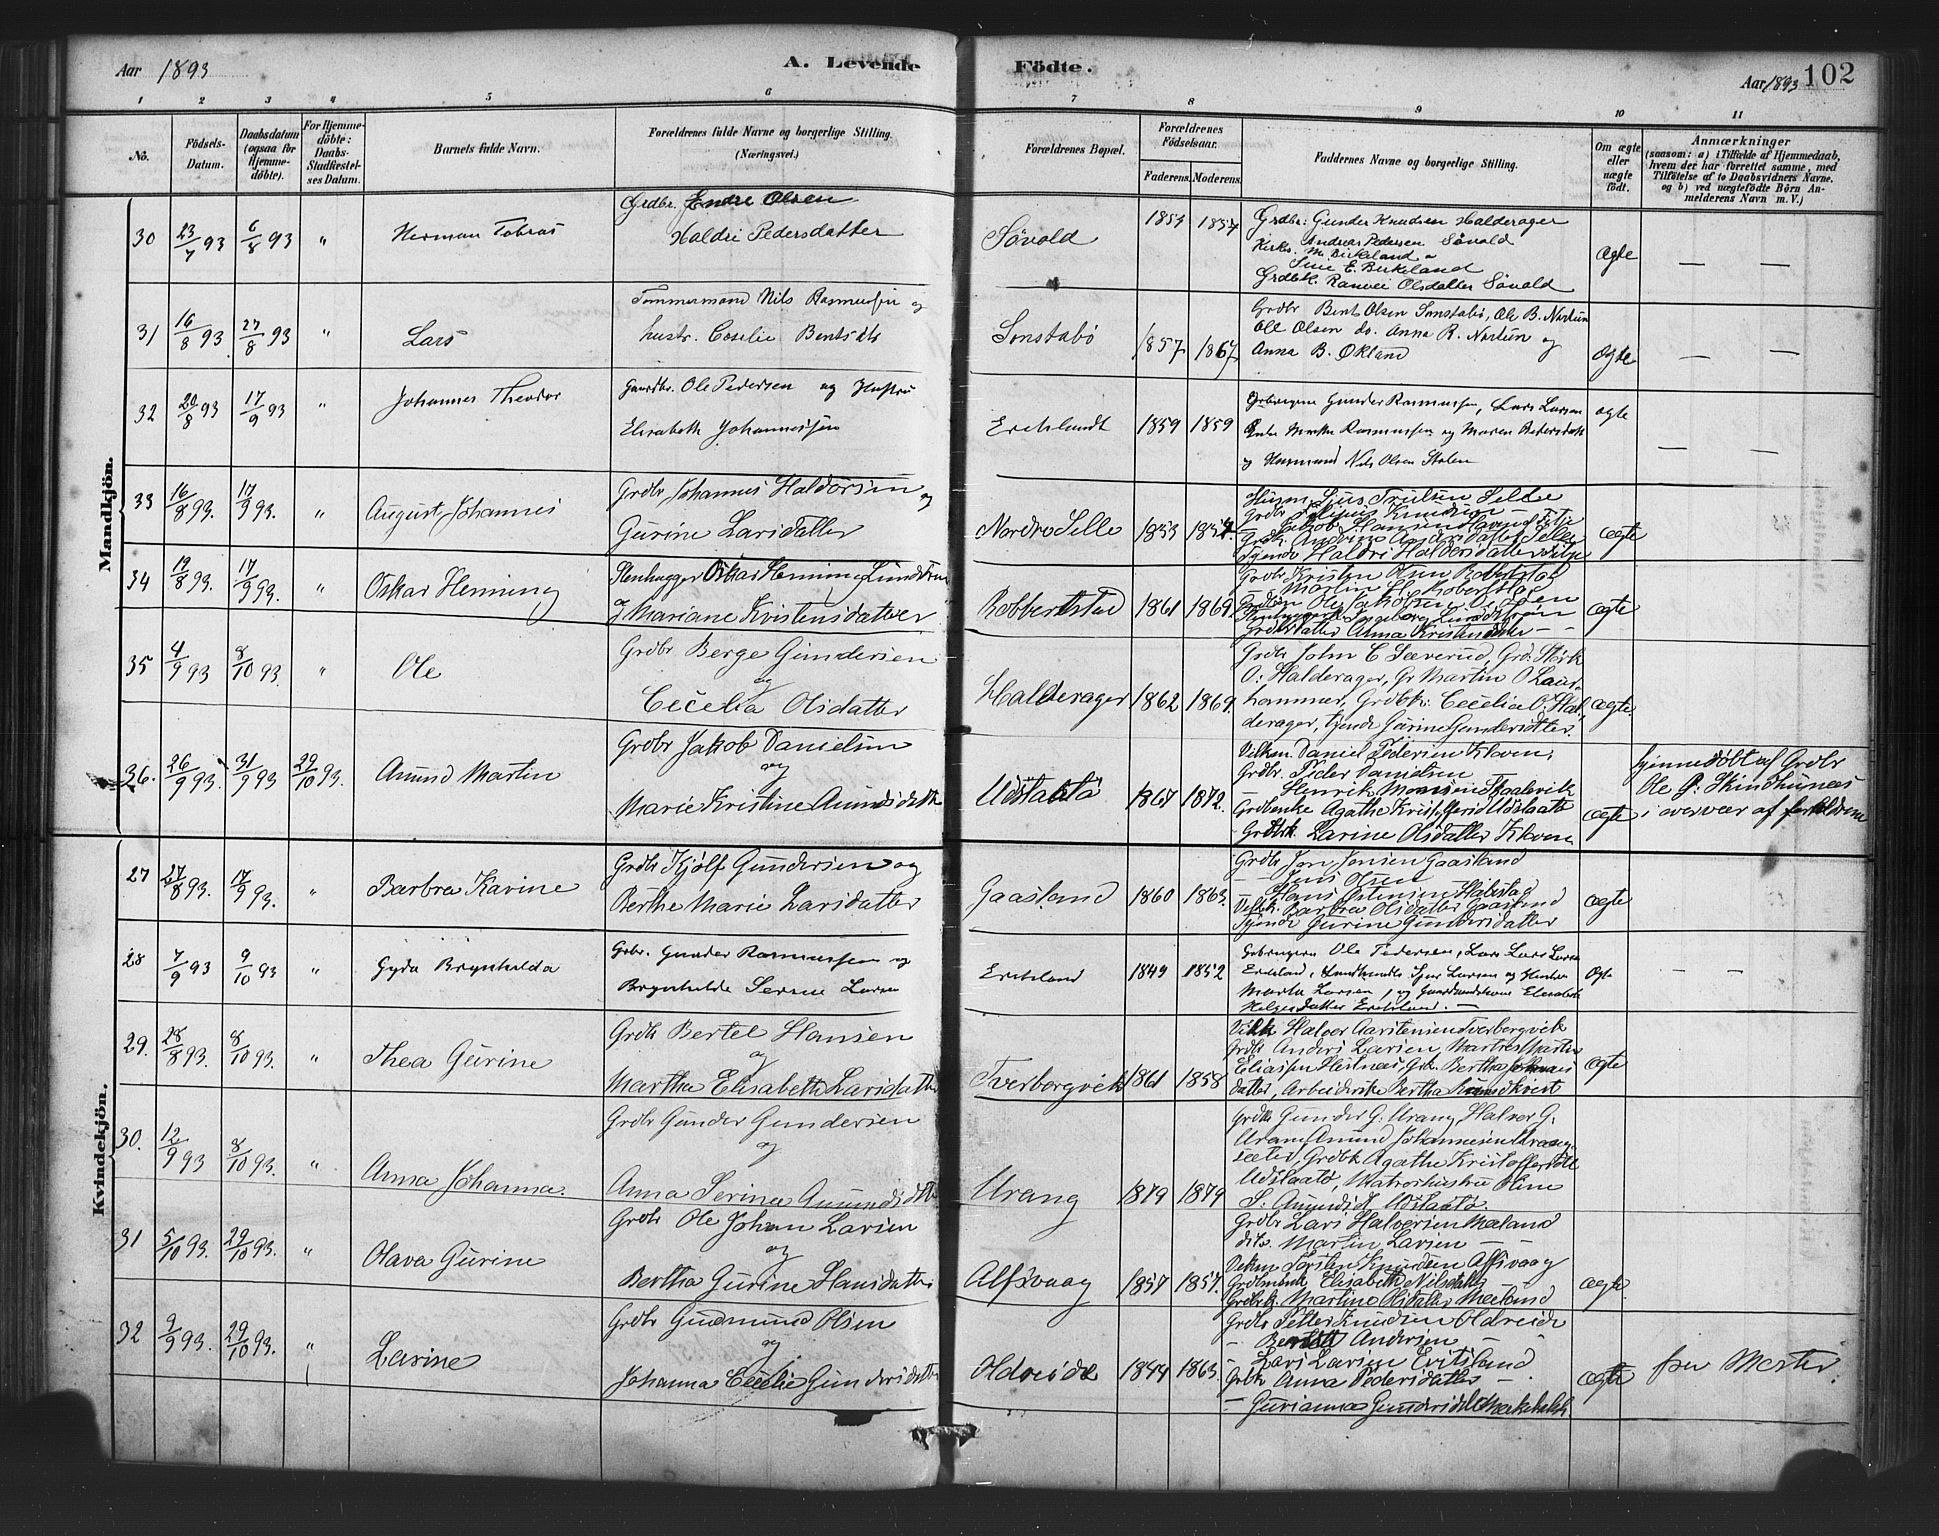 Aar 1893
A. Levende
Födte.
Aar 1893
102
1 2 3 4 5 6 7 8 9 10 11
No.
Födsels-Datum.
Daabsdatum (ogsaa for Hjemme-döbte).
For Hjemme-döbte: Daabs-Stadfæstel-ses Datum.
Barnets fulde Navn.
Forældrenes fulde Navne og borgerlige Stilling. (Næringsvei.)
Forældrenes Bopæl.
Forældrenes Födselsaar.
Faderens. Moderens.
Faddernes Navne og borgerlige Stilling.
Om ægte eller uægte födt.
Anmærkninger
(saasom: a) i Tilfælde af Hjemmedaab, hvem der har forrettet samme, med Tilföielse af to Daabsvidners Navne, og b) ved uægtefödte Börn An-melderens Navn m. V.)
Mandkjön.
30 23/7 93 6/8 93 " Herman Tobias
Grdbr. Endre Olsen
Haldri Pedersdatter
Sövold 1853 1857
Grdbr: Gunder Knudsen Halderager
Andreas Pedersen Sövold
M. Birkeland
Sine E. Birkeland
Grdbk. Ranvei Olsdatter Sövold
Ægte — —
31 16/8 93 27/8 93 " Lars
Tömmermand Nils Rasmussen og
hustr. Cecelie Bentsdtr
Sonstabö 1857 1867
Grdbr Bent Olsen Sonstabö, Ole B. Nortun
Ole Olsen do. Anna R. Nortun og
Anna B. Ökland
Ægte — —
32 20/8 93 17/9 93 " Johannes Theodor
Gaardbr. Ole Pedersen og Hustru
Elisabeth Johannessen
Erikslandt 1859 1859
Gunder Rasmussen, Lars Larsen
Rasmussen og Maren Pedersdatt
og Husmand Nils Olsen Stolen
ægte — —
33 16/8 93. 17/9 93. " August Johannes
Grdbr Johannes Haldorsen og
Gurine Larsdatter
Nordre Selle 1853 1857
ægte
34 19/8 93. 17/9 93. " Oskar Henning
Stenhugger Oskar Henning Lundström
og Mariane Kristensdatter
Robbertstad 1861 1869.
Grdbr Kristen Olsen Robbertstad
Grdbrdatter Anna Kristensdatter — —
ægte
35 4/9 93 8/10 93. " Ole
Grdbr Berge Gundersen
og
Cecelia Olsdatter
Halderager 1862 1869.
Grdbr John C Sæverud, Grd: Störk
O. Halderager, Gr Martin O Laur-
hammer, Grdbk: Cecelia O. Hal-
derager, tjende Gurine Gundersdatter.
ægte.
36. 26/9 93. 31/9 93 29/10 93. Amund Martin
Grdbr Jakob Danielsen
og
Marie Kristine Amundsdatt
Udstaatö 1867 1872.
Vilkm. Daniel Pedersen Kloven.
Grdbr. Peder Danielsen
Henrik Monsen Staalevik
Grdbenke Agathe Kristoffersd Udstaatö
Grdbrk Larine Olsdatter Kloven
ægte
hjemmedöbt af Grdbr
Ole P. Skimhunes
i overvær af forældrene
Kvindekjön.
27 27/8 93. 17/9 93. " Barbra Karine
Grdbr Kjölf Gundersen og
Berthe Marie Larsdatter
Gaasland 1860 1863.
Grdbr Jon Jonsen Gaasland
— Jens Olsen
Vilkk. Barbra Olsdatter Gaasland
Tjende Gurine Gundersdatter
ægte
28 7/9 93 9/10 93 " Gyda Brynhilda
Grbr. Gunder Rasmussen og
Brynhilde Serine Larsen
Eriksland 1849 1852
Grbrugerne Ole Pedersen, Lars Lars Larsen
Eriksland, Landhandler Sjur Larsen og Hustru
Marta Larsen, og Gaardmandskone Elisabeth
Helgesdatter Eriksland. —
Ægte — —
29. 28/8 93. 8/10 93. " Thea Gurine
Grdbr Bertel Hansen
og
Martha Elisabeth Larsdatter
Tverborgvik 1861 1858
Vilkk Halvor Aarstensen Tverborgvik
Grdbr Anders Larsen, Matros Martin
Eliassen Hestnæs, Grk. Bertha Johannes
datter, Arbeiderske Bertha Lundkvist
ægte
30. 12/9 93 8/10 93. " Anna Johanna.
Grdbr Gunder Gundersen
og
Anna Serina Amundsdatt
Urang 1879 1879
Grdbr Gunder G. Urang, Halvor G.
Urang Amund Johannesen Urang-
sæter, Grdbk Agathe Kristoffersdatt
Udstaatö, Matroshustru Oline
S. Amundsd Udstaatö.
31 5/10 93. 29/10 93. " Olava Gurine
Grdbr Ole Johan Larsen
og
Bertha Gurine Hansdatter
Alfsvaag 1857 1857.
Grdbr Lars Halvorsen Mæland
dito. Martin Larsen — —
Vikm Torsten Knudsen Alfsvaag
Grdmænk Elisabeth Nilsdatter
Grdbrk. Martine Olsdatter Mæland
ægte.
32 9/9 93. 29/10 93. " Larine
Grdbr Gudmund Olsen
og
Johanna Cecelie Gundersdatter
Oldreide 1844 1863.
Grdbr Petter Knudsen Oldreide
— Andersen —
— Lars Larsen Eritsland
Grbk Anna Pedersdatter —
— Gurianna Gundersdtr Mækehalsh
ægte fra Moster.